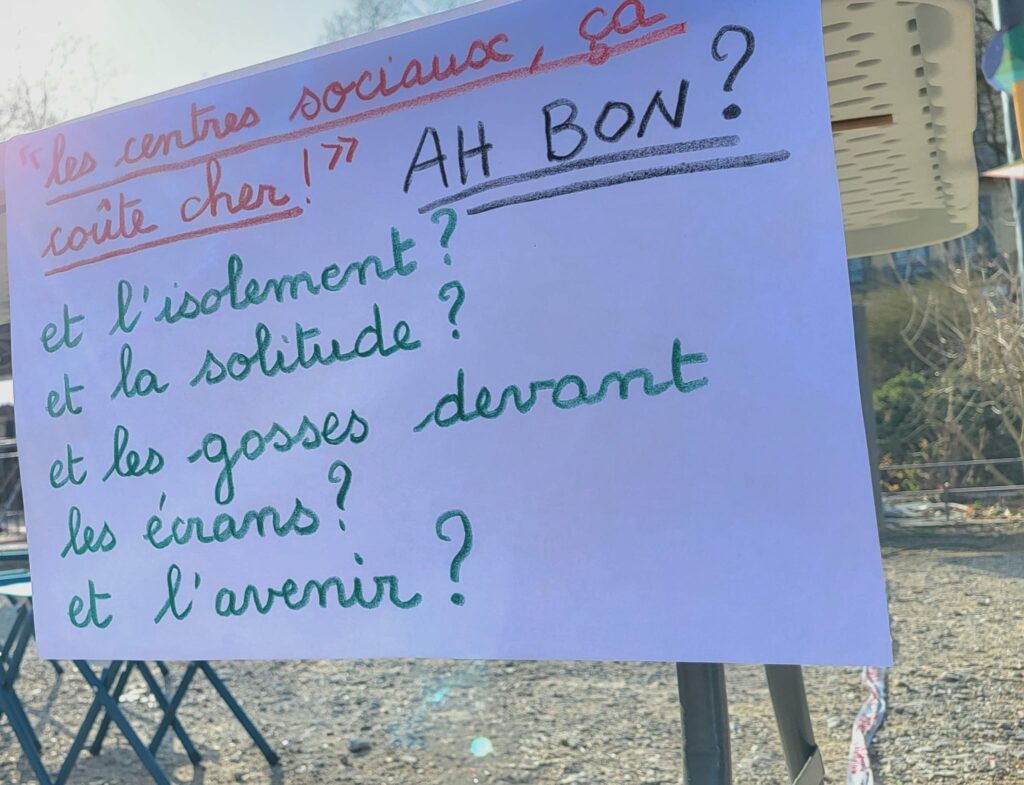 "les centres sociaux, ça
coûte cher!" AH BON?
et l'isolement?
et la solitude?
et les gosses devant
les écrans?
et l'avenir?